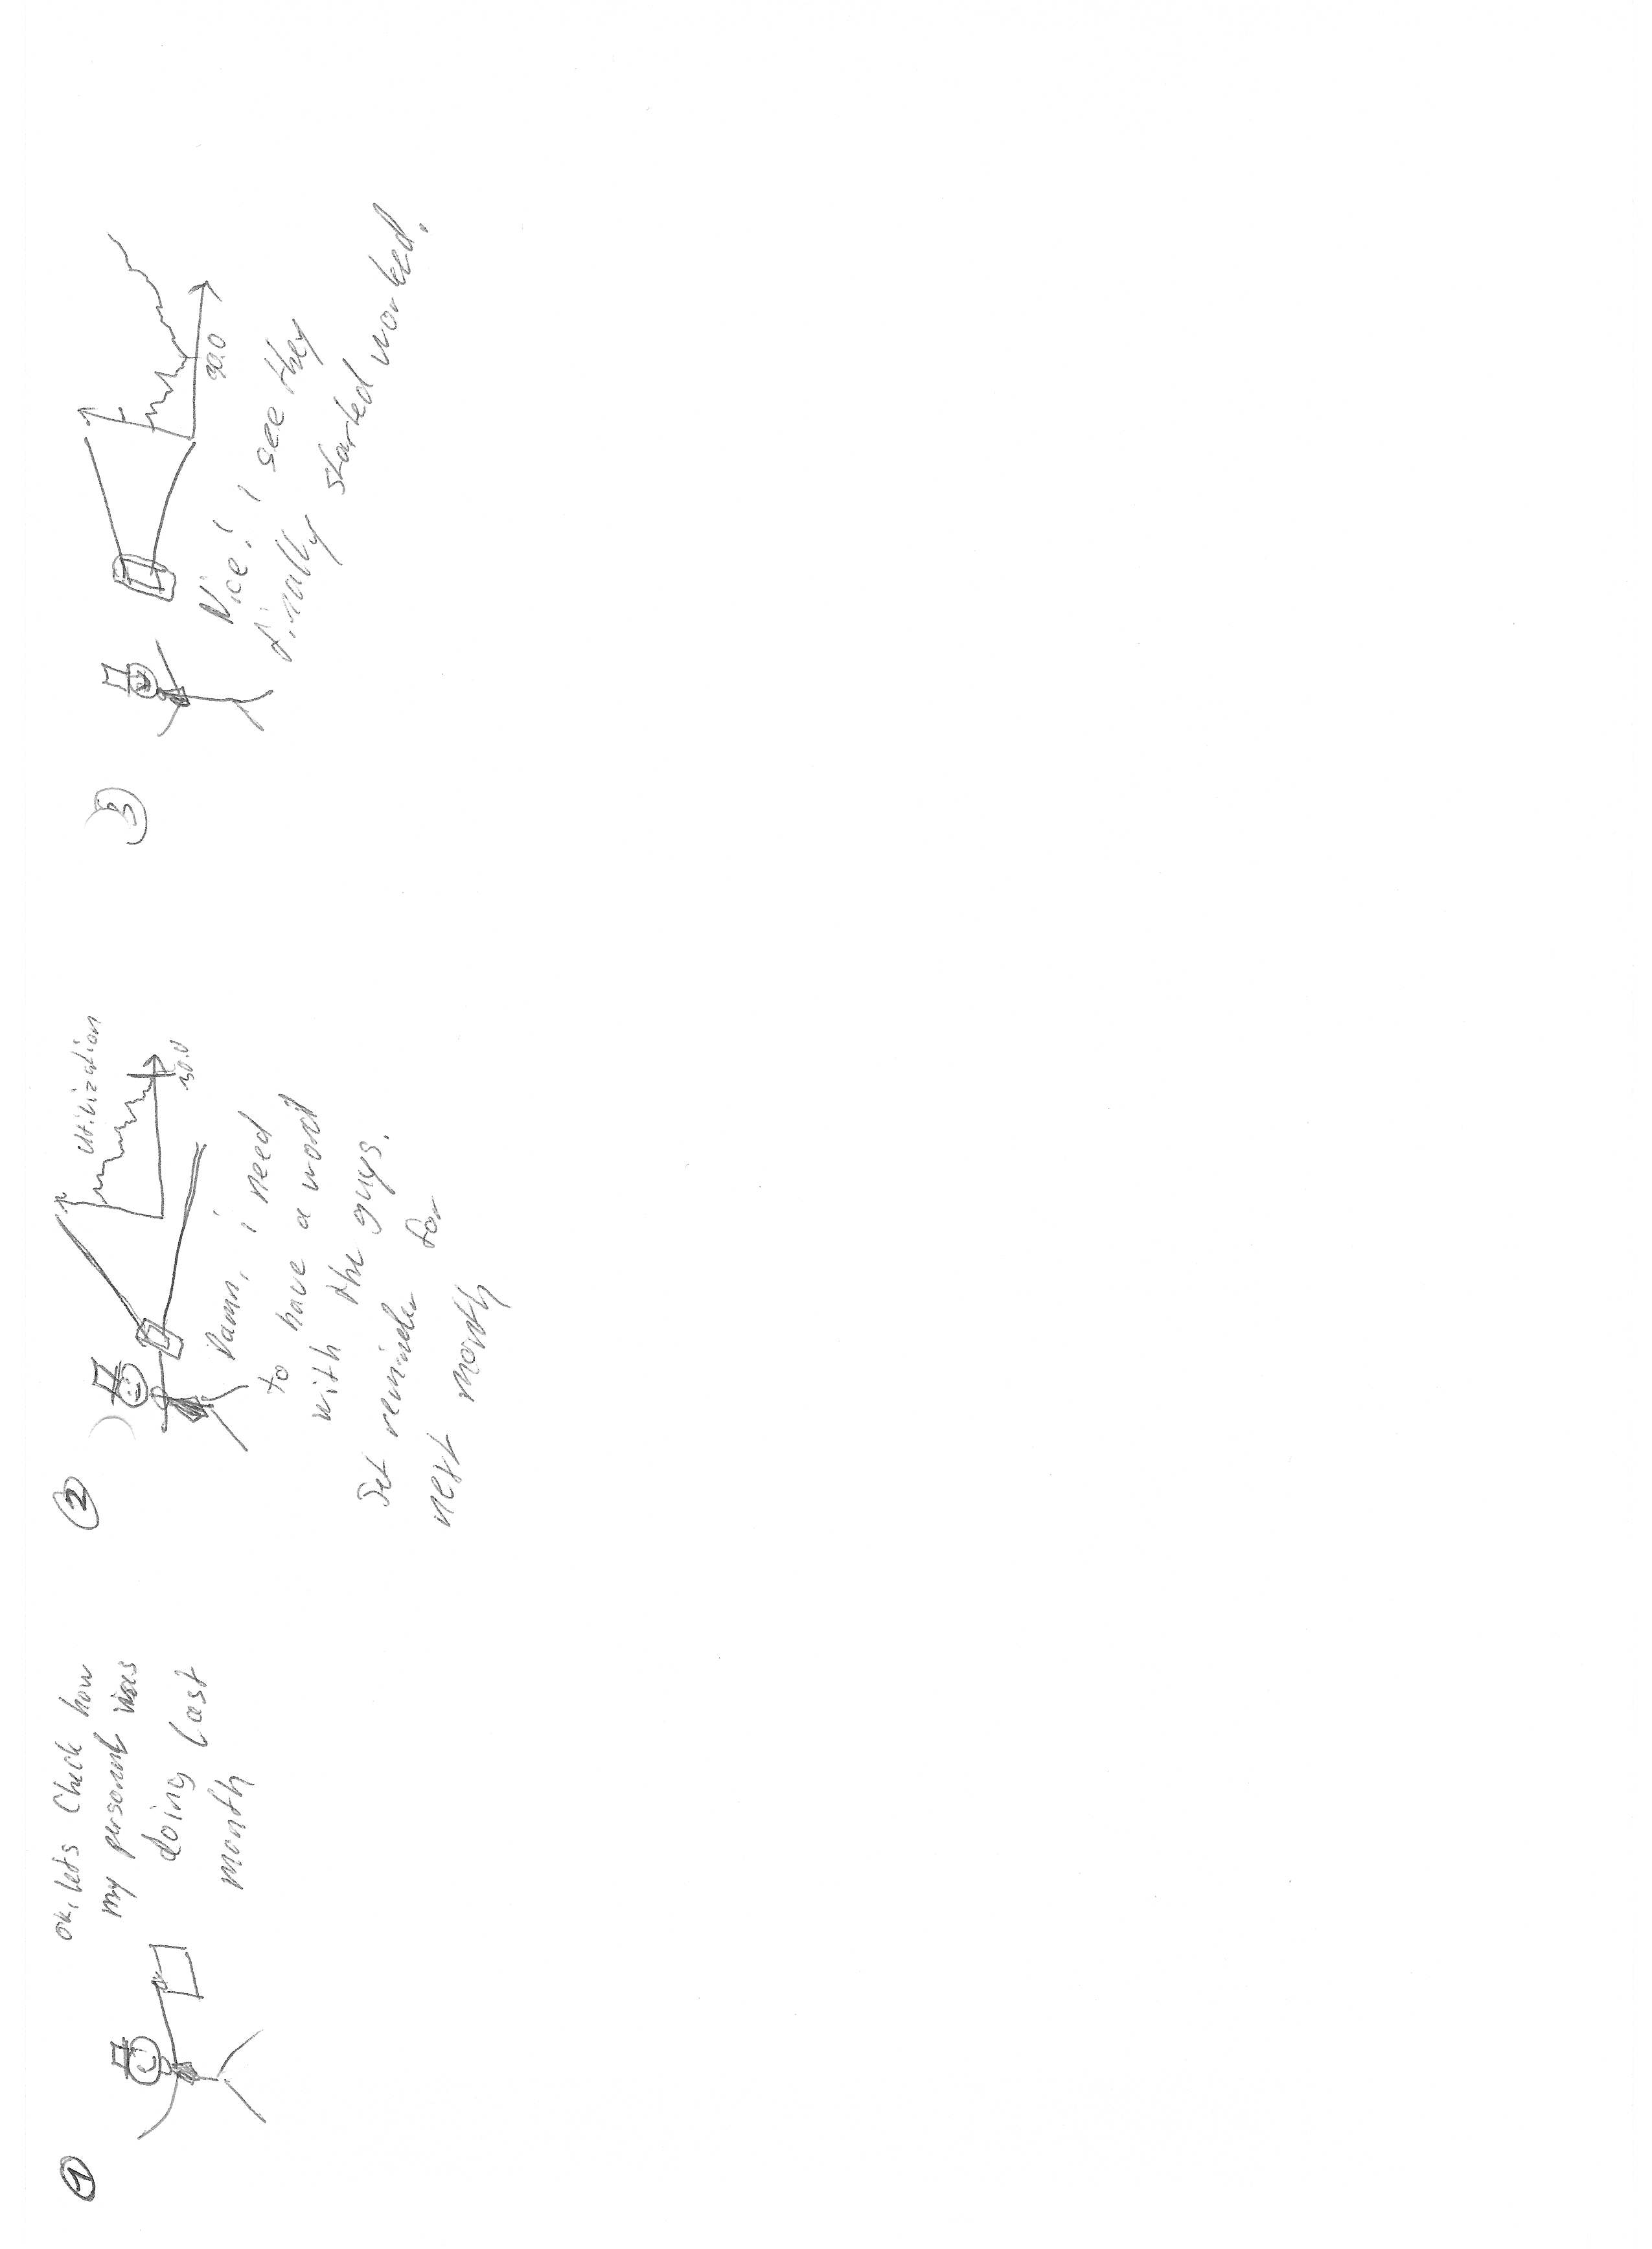 1
ok, lets check how
my personnel was
doing last
month
2
Utilization
30.0
Damn, i need
to have a word
with the guys.
Set reminder for
next month
3
30.0
Nice! I see they
finally started worked.